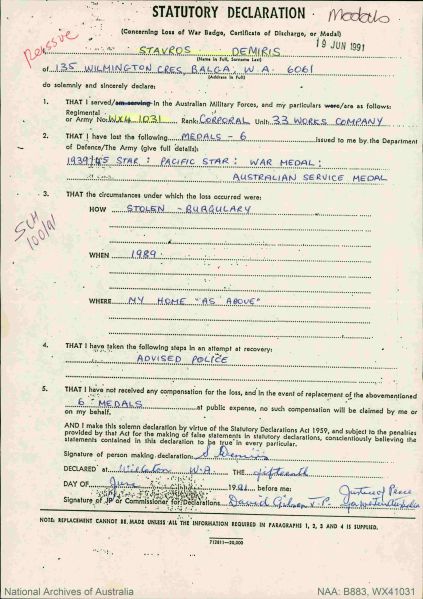 STATUTORY DECLARATION
Medals
(Concerning Loss of War Badge, Certificate of Discharge, or Medal)
Reissue
19 JUN 1991
STAVROS DEMIRIS
(Name in Full, Surname Last)
of 135 WILMINGTON CRES, BALGA, W.A. 6061
(Address in Full)
do solemnly and sincerely declare:
1. THAT I served/am serving in the Australian Military Forces, and my particulars were/are as follows:
Regimental
or Army No. WX4 1031 Rank CORPORAL Unit 33 WORKS COMPANY
2. THAT I have lost the following MEDALS - 6 issued to me by the Department
of Defence/The Army (give full details):
1939/45 STAR : PACIFIC STAR : WAR MEDAL :
AUSTRALIAN SERVICE MEDAL
3. THAT the circumstances under which the loss occurred were:
HOW STOLEN - BURGULARY
SCH
100/91
WHEN 1989
WHERE MY HOME "AS ABOVE"
4. THAT I have taken the following steps in an attempt at recovery:
ADVISED POLICE
5. THAT I have not received any compensation for the loss, and in the event of replacement of the abovementioned
6 MEDALS at public expense, no such compensation will be claimed by me or
on my behalf.
AND I make this solemn declaration by virtue of the Statutory Declarations Act 1959, and subject to the penalties
provided by that Act for the making of false statements in statutory declarations, conscientiously believing the
statements contained in this declaration to be true in every particular.
Signature of person making declaration: S Demiris
DECLARED at Willeton W.A. THE fifteenth
DAY OF June 1991 before me: Justice of Peace
Signature of JP or Commissioner for Declarations David Gibson J.P. for Western Australia
NOTE: REPLACEMENT CANNOT BE MADE UNLESS ALL THE INFORMATION REQUIRED IN PARAGRAPHS 1, 2, 3 AND 4 IS SUPPLIED.
National Archives of Australia
NAA: B883, WX41031